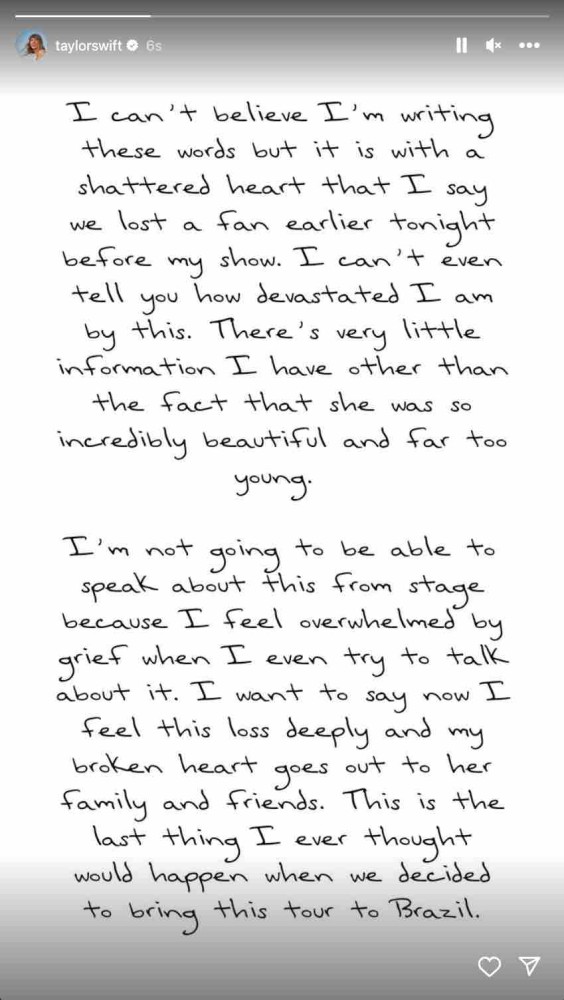 taylorswift 6s
I can't believe I'm writing
these words but it is with a
shattered heart that I say
we lost a fan earlier tonight
before my show. I can't even
tell you how devastated I am
by this. There's very little
information I have other than
the fact that she was so
incredibly beautiful and far too
young.
I'm not going to be able to
speak about this from stage
because I feel overwhelmed by
grief when I even try to talk
about it. I want to say now I
feel this loss deeply and my
broken heart goes out to her
family and friends. This is the
last thing I ever thought
would happen when we decided
to bring this tour to Brazil.